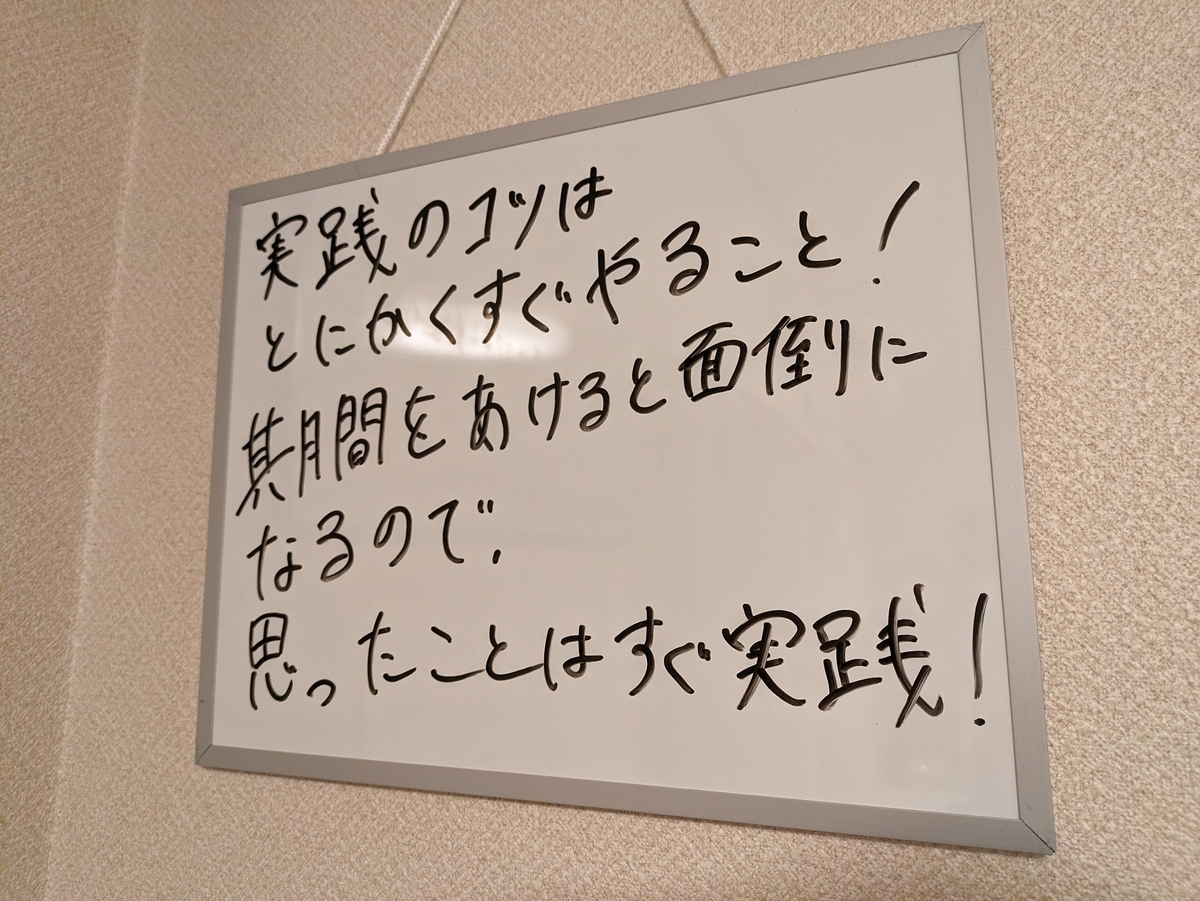 実践のコツは
とにかくすぐやること!
期間をあけると面倒に
なるので、
思ったことはすぐ実践!